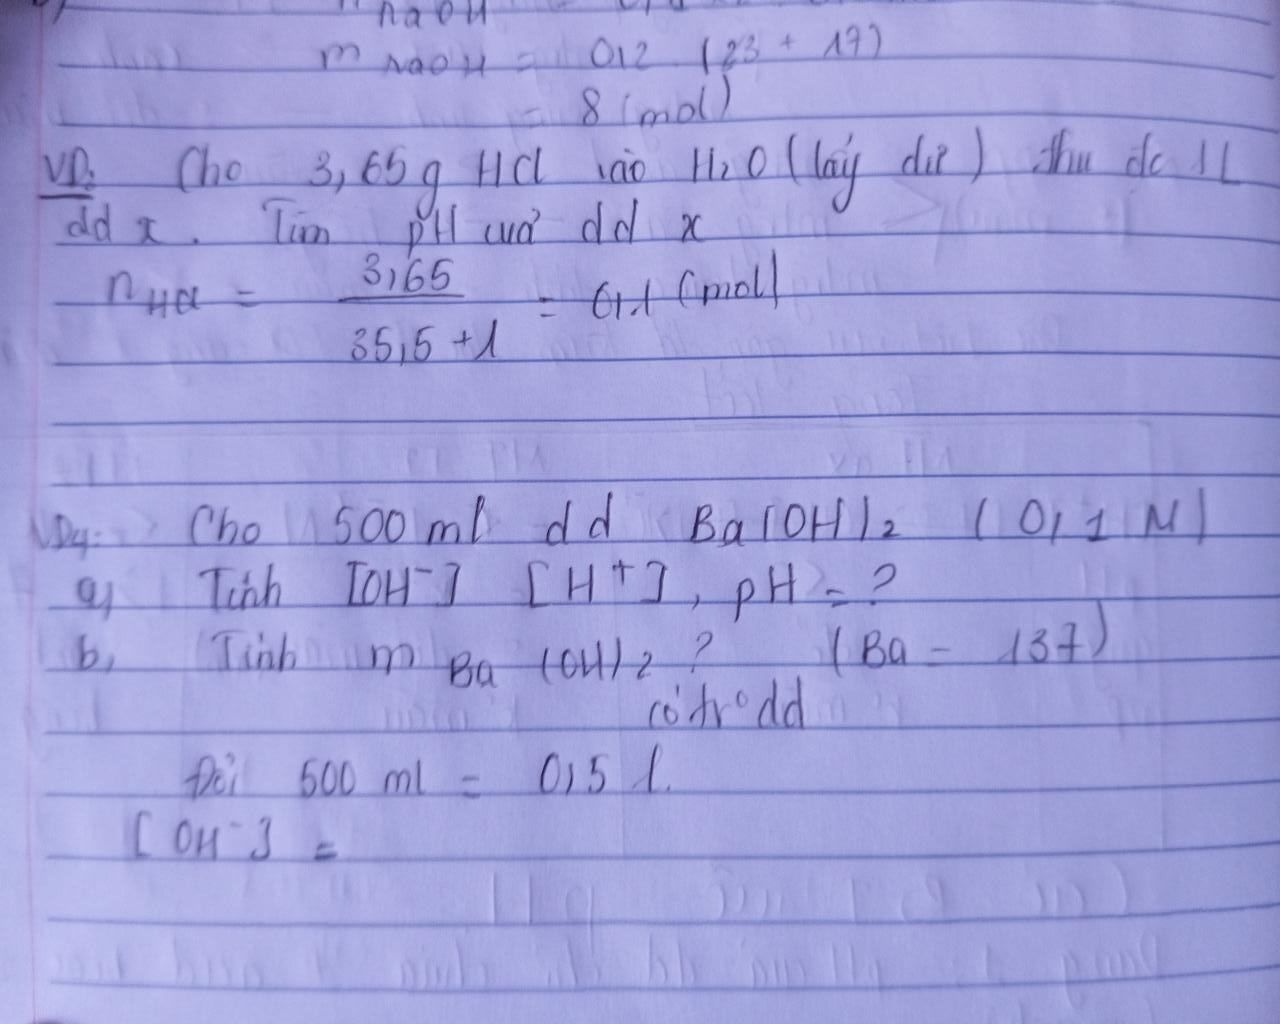 NaOH
m NaOH = 0,2 (23 + 17)
= 8 (mol)
VD: Cho 3,65g HCl vào H₂O (lấy dư) thu đc 1L
dd x. Tìm pH của dd x
n HCl = 3,65 / 35,5 + 1 = 0,1 (mol)
VD4: Cho 500 ml dd Ba(OH)₂ (0,1 M)
a, Tính [OH⁻] [H⁺], pH = ?
b, Tính m Ba(OH)₂ ? (Ba = 137)
có tr° dd
Đổi 500 ml = 0,5 l.
[OH⁻] =